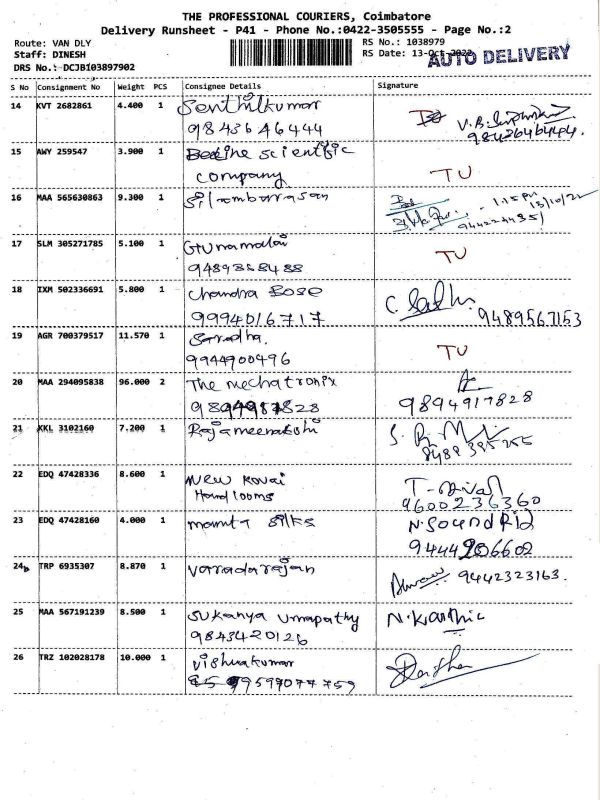 THE PROFESSIONAL COURIERS, Coimbatore
Delivery Runsheet - P41 - Phone No.:0422-3505555 - Page No.:2
Route: VAN DLY
RS No.: 1038979
Staff: DINESH
RS Date: 13-Oct-2022
AUTO DELIVERY
DRS No.: DCJB103897902
S No Consignment No Weight PCS Consignee Details Signature
14 KVT 2682861 4.400 1 Senthilkumar
9843646444
15 AWY 259547 3.900 1 scientific
company TU
16 MAA 565630863 9.300 1 Silambarasan
1:15 pm
13/10/22
17 SLM 305271785 5.100 1
TU
18 IXM 502336691 5.800 1 Chandra Bose
9994016717 9489567153
19 AGR 700379517 11.570 1 Saradha.
9944900496 TU
20 MAA 294095838 96.000 2 The mechatronix
9894917828
21 KKL 3102160 7.200 1 Rajameenakshi
22 EDQ 47428336 8.600 1 New Kovai
Handlooms
9600236360
23 EDQ 47428160 4.000 1 silks
9444206602
24 TRP 6935307 8.870 1 Varadarajan
9442323163.
25 MAA 567191239 8.500 1 Sukanya Umapathy N.Karthic
9843420126
26 TRZ 102028178 10.000 1 Vishwakumar